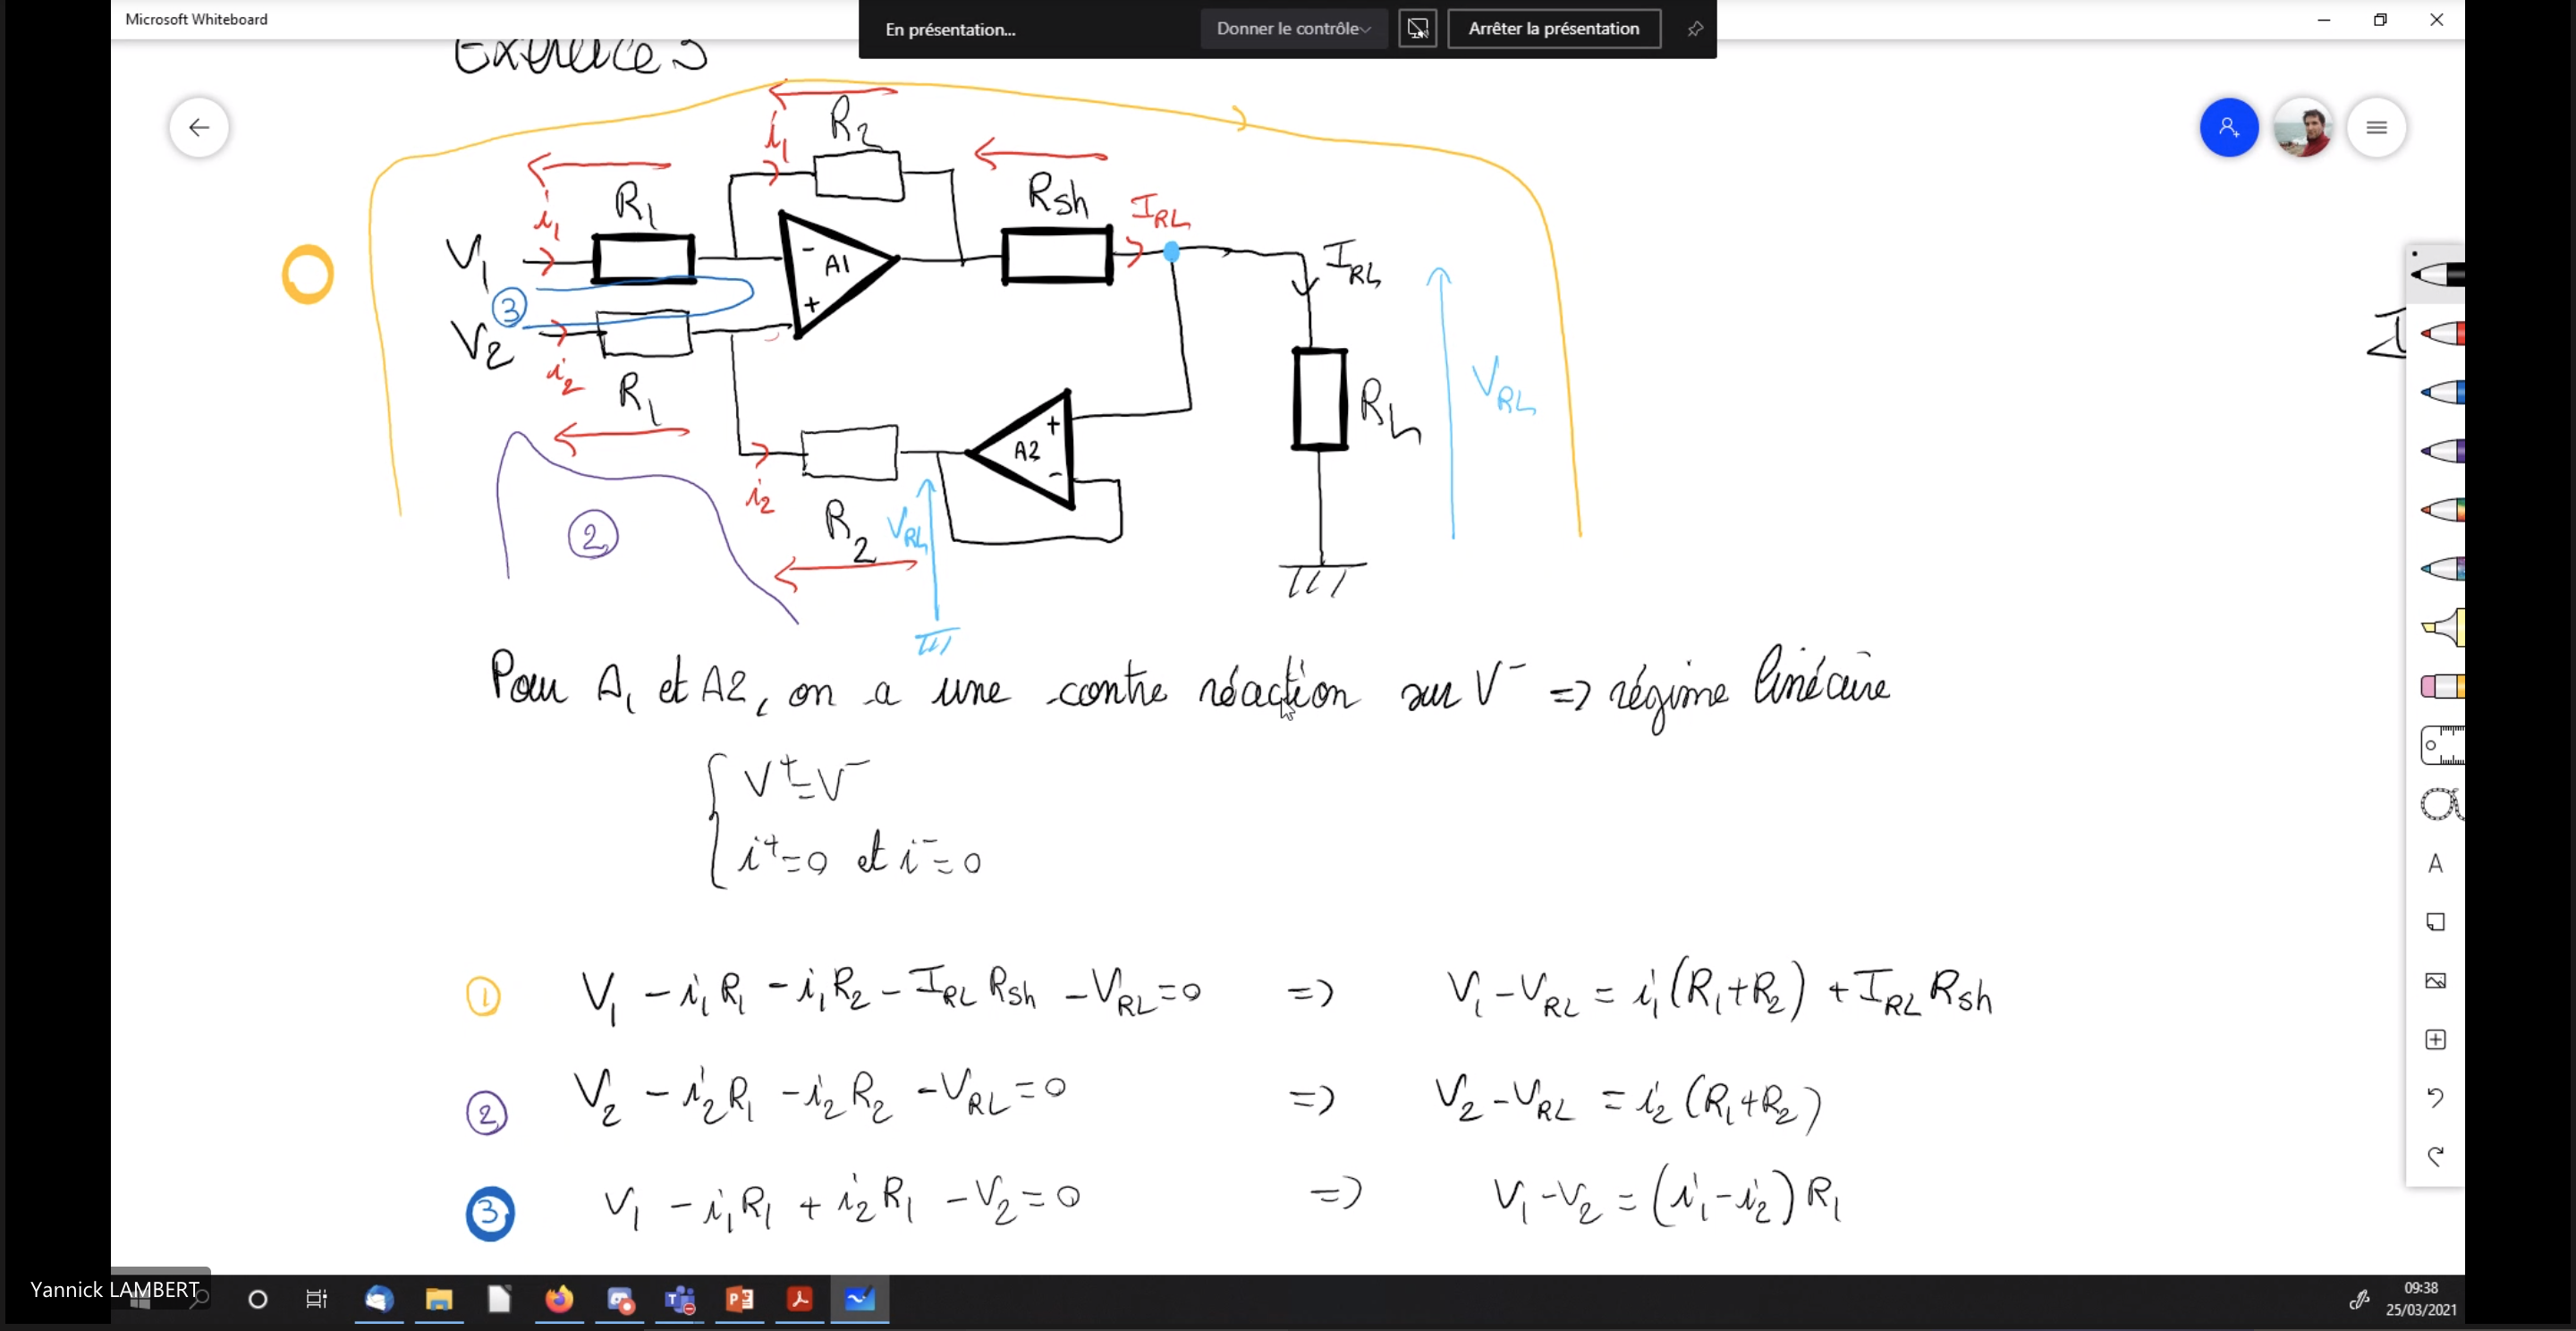 Microsoft Whiteboard
En présentation...
Donner le contrôle
Arrêter la présentation
Exercice 3
i₁
R₂
i₁
R₁
Rsh
I_RL
V₁
-
A1
+
I_RL
3
V₂
i₂
R₁
V_RL
R_L
+
A2
-
i₂
R₂
V_RL
2
Pour A₁ et A2, on a une contre réaction sur V⁻ => régime linéaire
V⁺=V⁻
i⁺=0 et i⁻=0
1 V₁ - i₁R₁ - i₁R₂ - I_RL Rsh - V_RL = 0 => V₁ - V_RL = i₁(R₁+R₂) + I_RL Rsh
2 V₂ - i₂R₁ - i₂R₂ - V_RL = 0 => V₂ - V_RL = i₂(R₁+R₂)
3 V₁ - i₁R₁ + i₂R₁ - V₂ = 0 => V₁ - V₂ = (i₁ - i₂)R₁
Yannick LAMBERT
09:38
25/03/2021